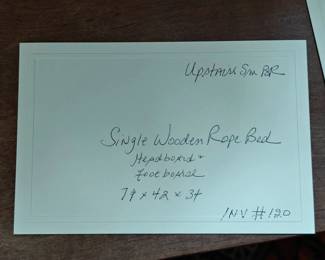 Upstairs Sm BR
Single Wooden Rope Bed
Headboard +
Footboard
79 x 42 x 34
INV # 120